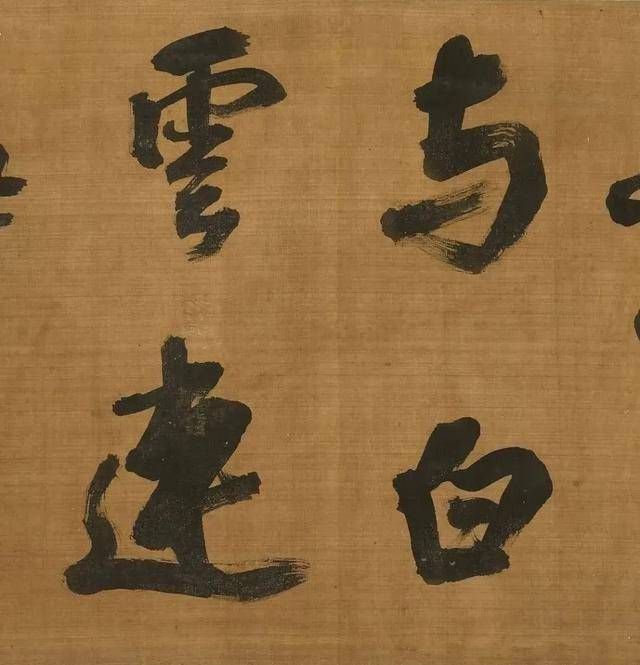 与白
雲連